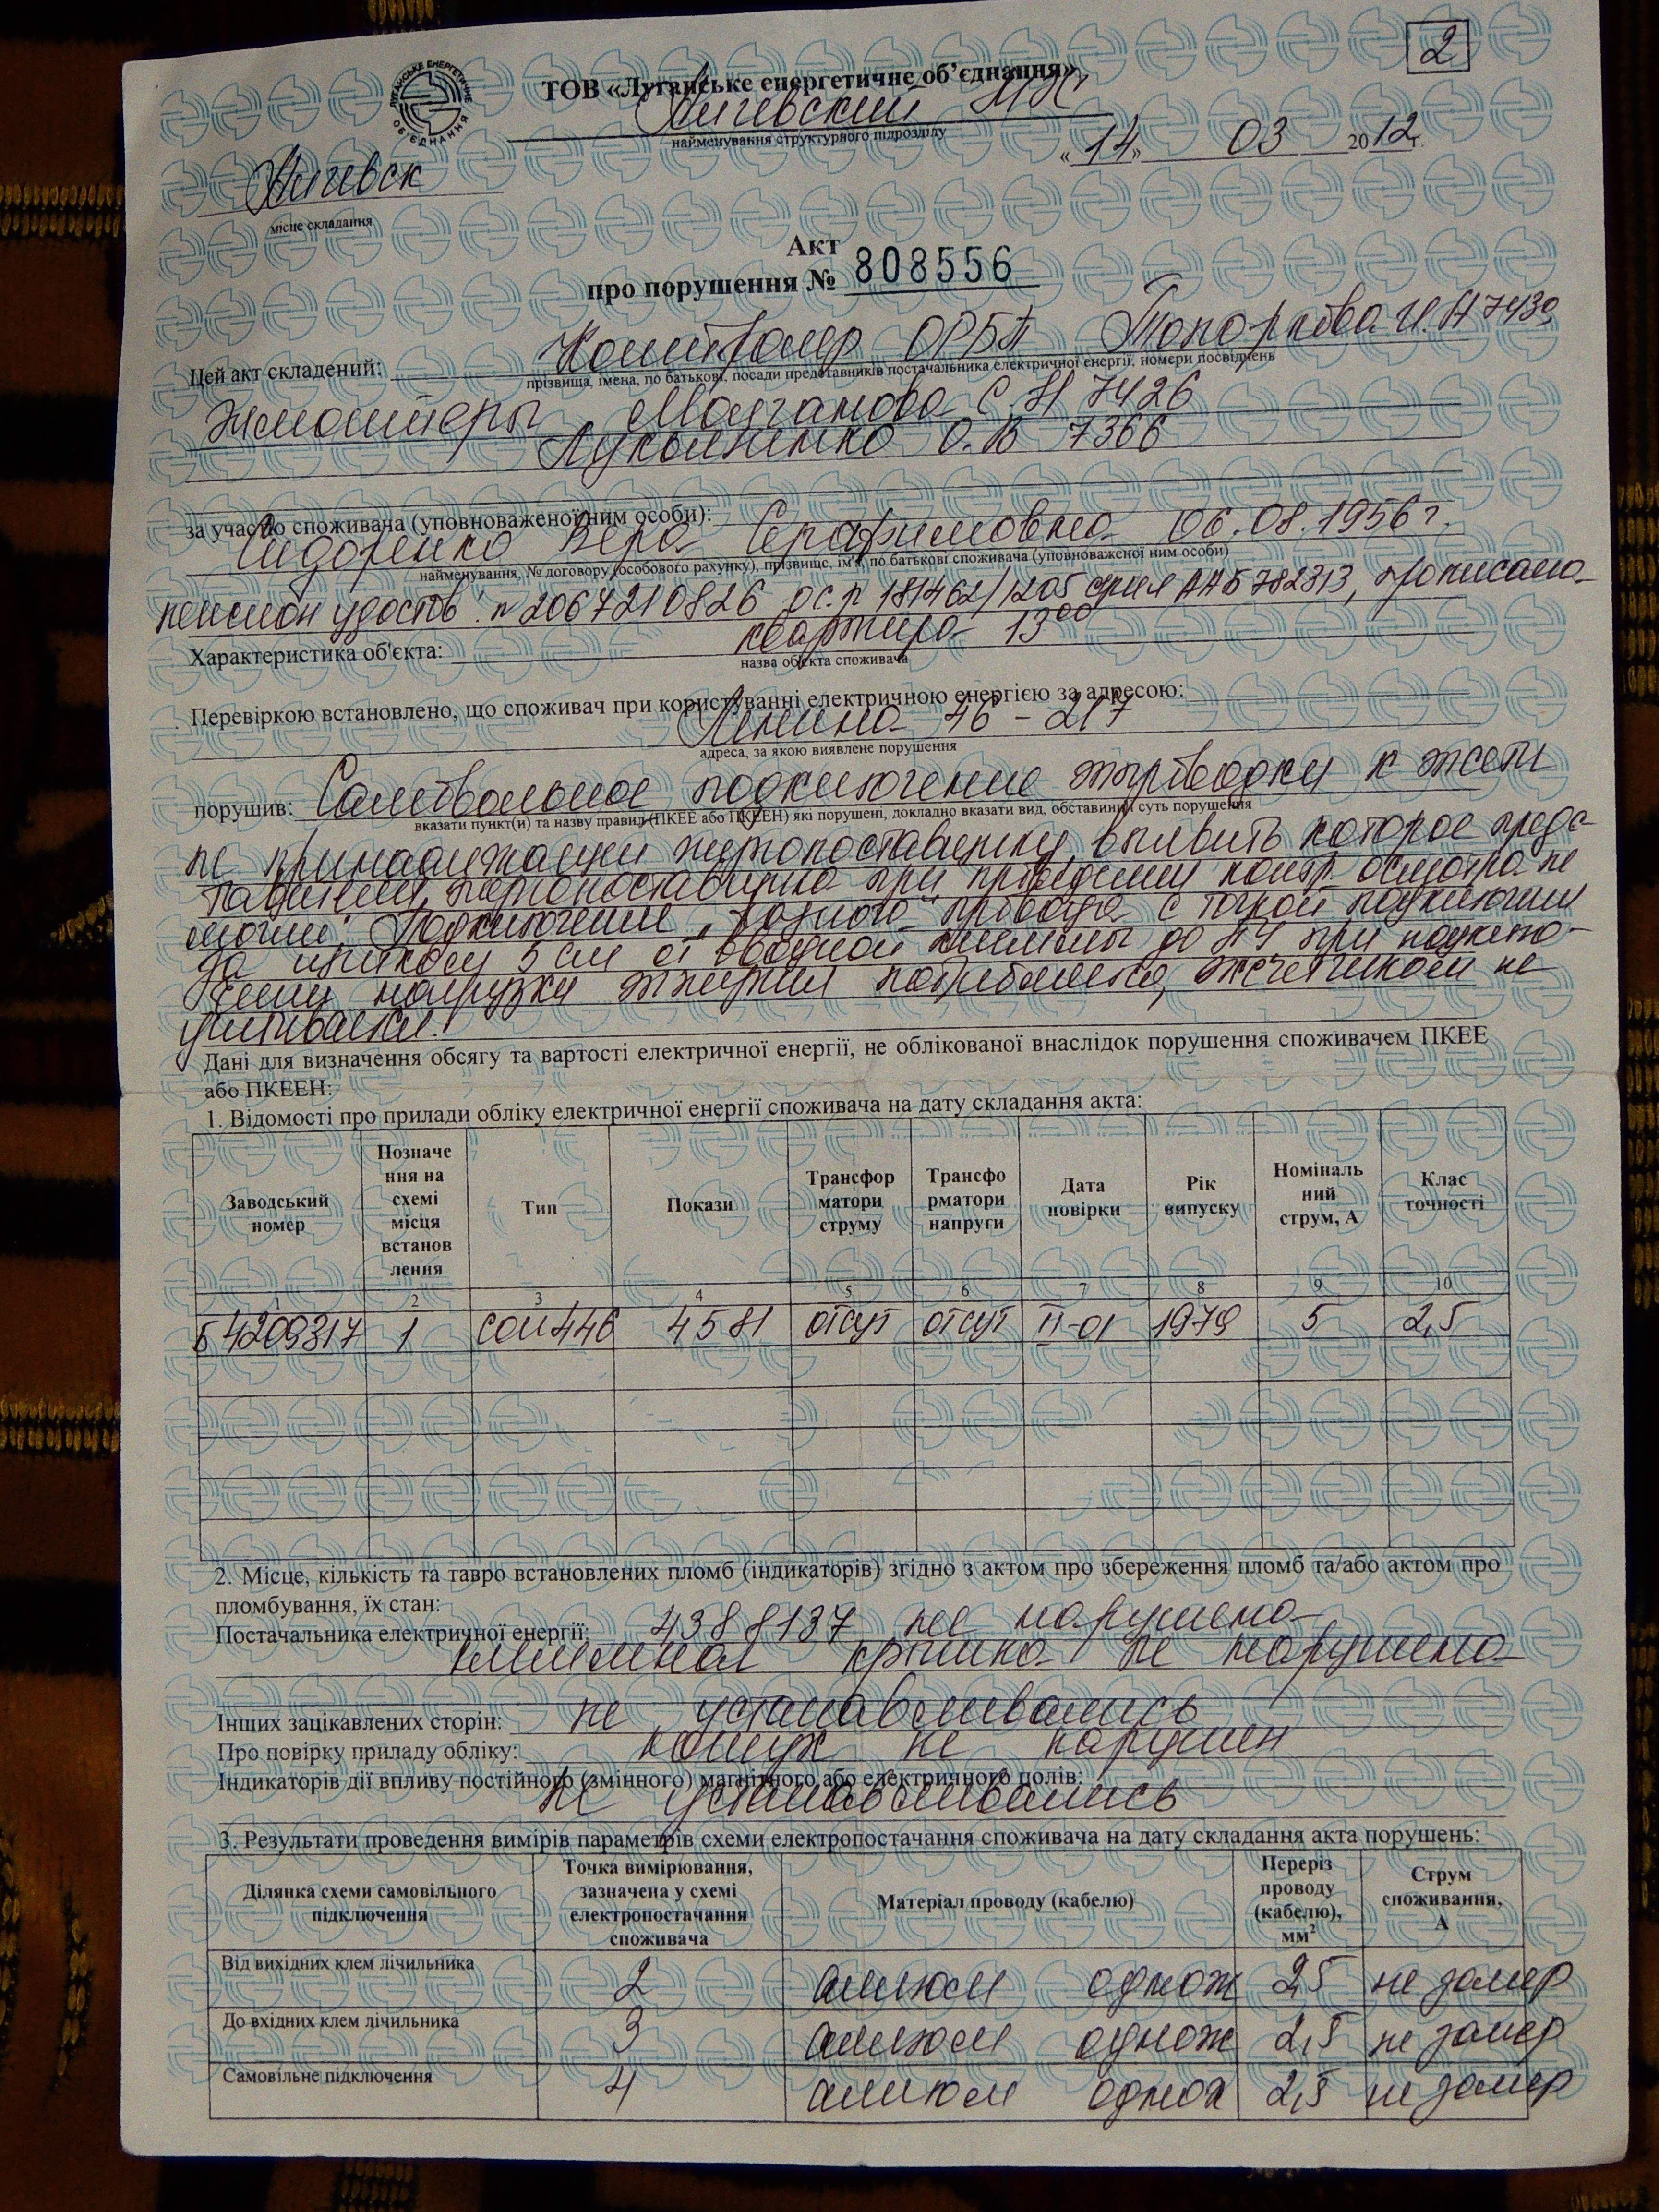 2
ЛУГАНСЬКЕ ЕНЕРГЕТИЧНЕ ОБ'ЄДНАННЯ
ТОВ «Луганське енергетичне об’єднання»
найменування структурного підрозділу
«14» 03 2012г.
місце складання
Акт
про порушення № 808556
Цей акт складений: Контролер ОРБП Топоркова И. Н 7430
прізвища, імена, по батькові, посади представників постачальника електричної енергії, номери посвідчень
С.Н 7426
Лукьяненко О.В 7366
за участю споживача (уповноваженої ним особи):
Сидоренко Вера Серафимовна 06.08.1956г.
найменування, № договору (особового рахунку), прізвище, ім'я, по батькові споживача (уповноваженої ним особи)
пенсион удостов. № 2067210826 серия ААБ 782313, прописана
Характеристика об'єкта: квартира 13⁰⁰
назва об'єкта споживача
Перевіркою встановлено, що споживач при користуванні електричною енергією за адресою:
Ленина 46 - 217
адреса, за якою виявлене порушення
порушив: Самовольное подключение к
вказати пункт(и) та назву правил (ПКЕЕ або ПКЕЕН) які порушені, докладно вказати вид, обставини й суть порушення
не выявить которое предс-
при проведении контр. осмотра не
могли. Подключение провода с точкой подключения
5 см от вводной клеммы до при подклю-
чении нагрузки не
Дані для визначення обсягу та вартості електричної енергії, не облікованої внаслідок порушення споживачем ПКЕЕ
або ПКЕЕН:
1. Відомості про прилади обліку електричної енергії споживача на дату складання акта:
Заводський номер Позначе ння на схемі місця встанов лення Тип Покази Трансфор матори струму Трансфо рматори напруги Дата повірки Рік випуску Номіналь ний струм, А Клас точності
1 2 3 4 5 6 7 8 9 10
4209317 1 сои446 4581 отсут отсут II-01 1979 5 2,5
2. Місце, кількість та тавро встановлених пломб (індикаторів) згідно з актом про збереження пломб та/або актом про
пломбування, їх стан:
Постачальника електричної енергії: 4388137 не нарушена
клеммная крышка не нарушена
Інших зацікавлених сторін: не устанавливались
Про повірку приладу обліку: кожух не нарушен
Індикаторів дії впливу постійного (змінного) магнітного або електричного полів:
не устанавливались
3. Результати проведення вимірів параметрів схеми електропостачання споживача на дату складання акта порушень:
Ділянка схеми самовільного підключення Точка вимірювання, зазначена у схемі електропостачання споживача Матеріал проводу (кабелю) Переріз проводу (кабелю), мм² Струм споживання, А
Від вихідних клем лічильника 2 алюм однож 2,5 не замер
До вхідних клем лічильника 3 алюм однож 2,5 не замер
Самовільне підключення 4 алюм однож 2,5 не замер